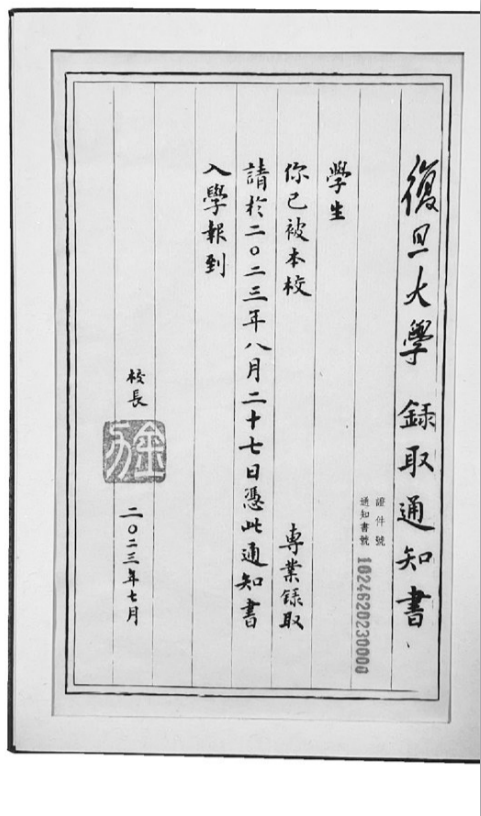 復旦大學 録取通知書
證件號
通知書號 1024620230000
學生
你已被本校 專業録取
請於二〇二三年八月二十七日憑此通知書
入學報到
校長
金力
二〇二三年七月